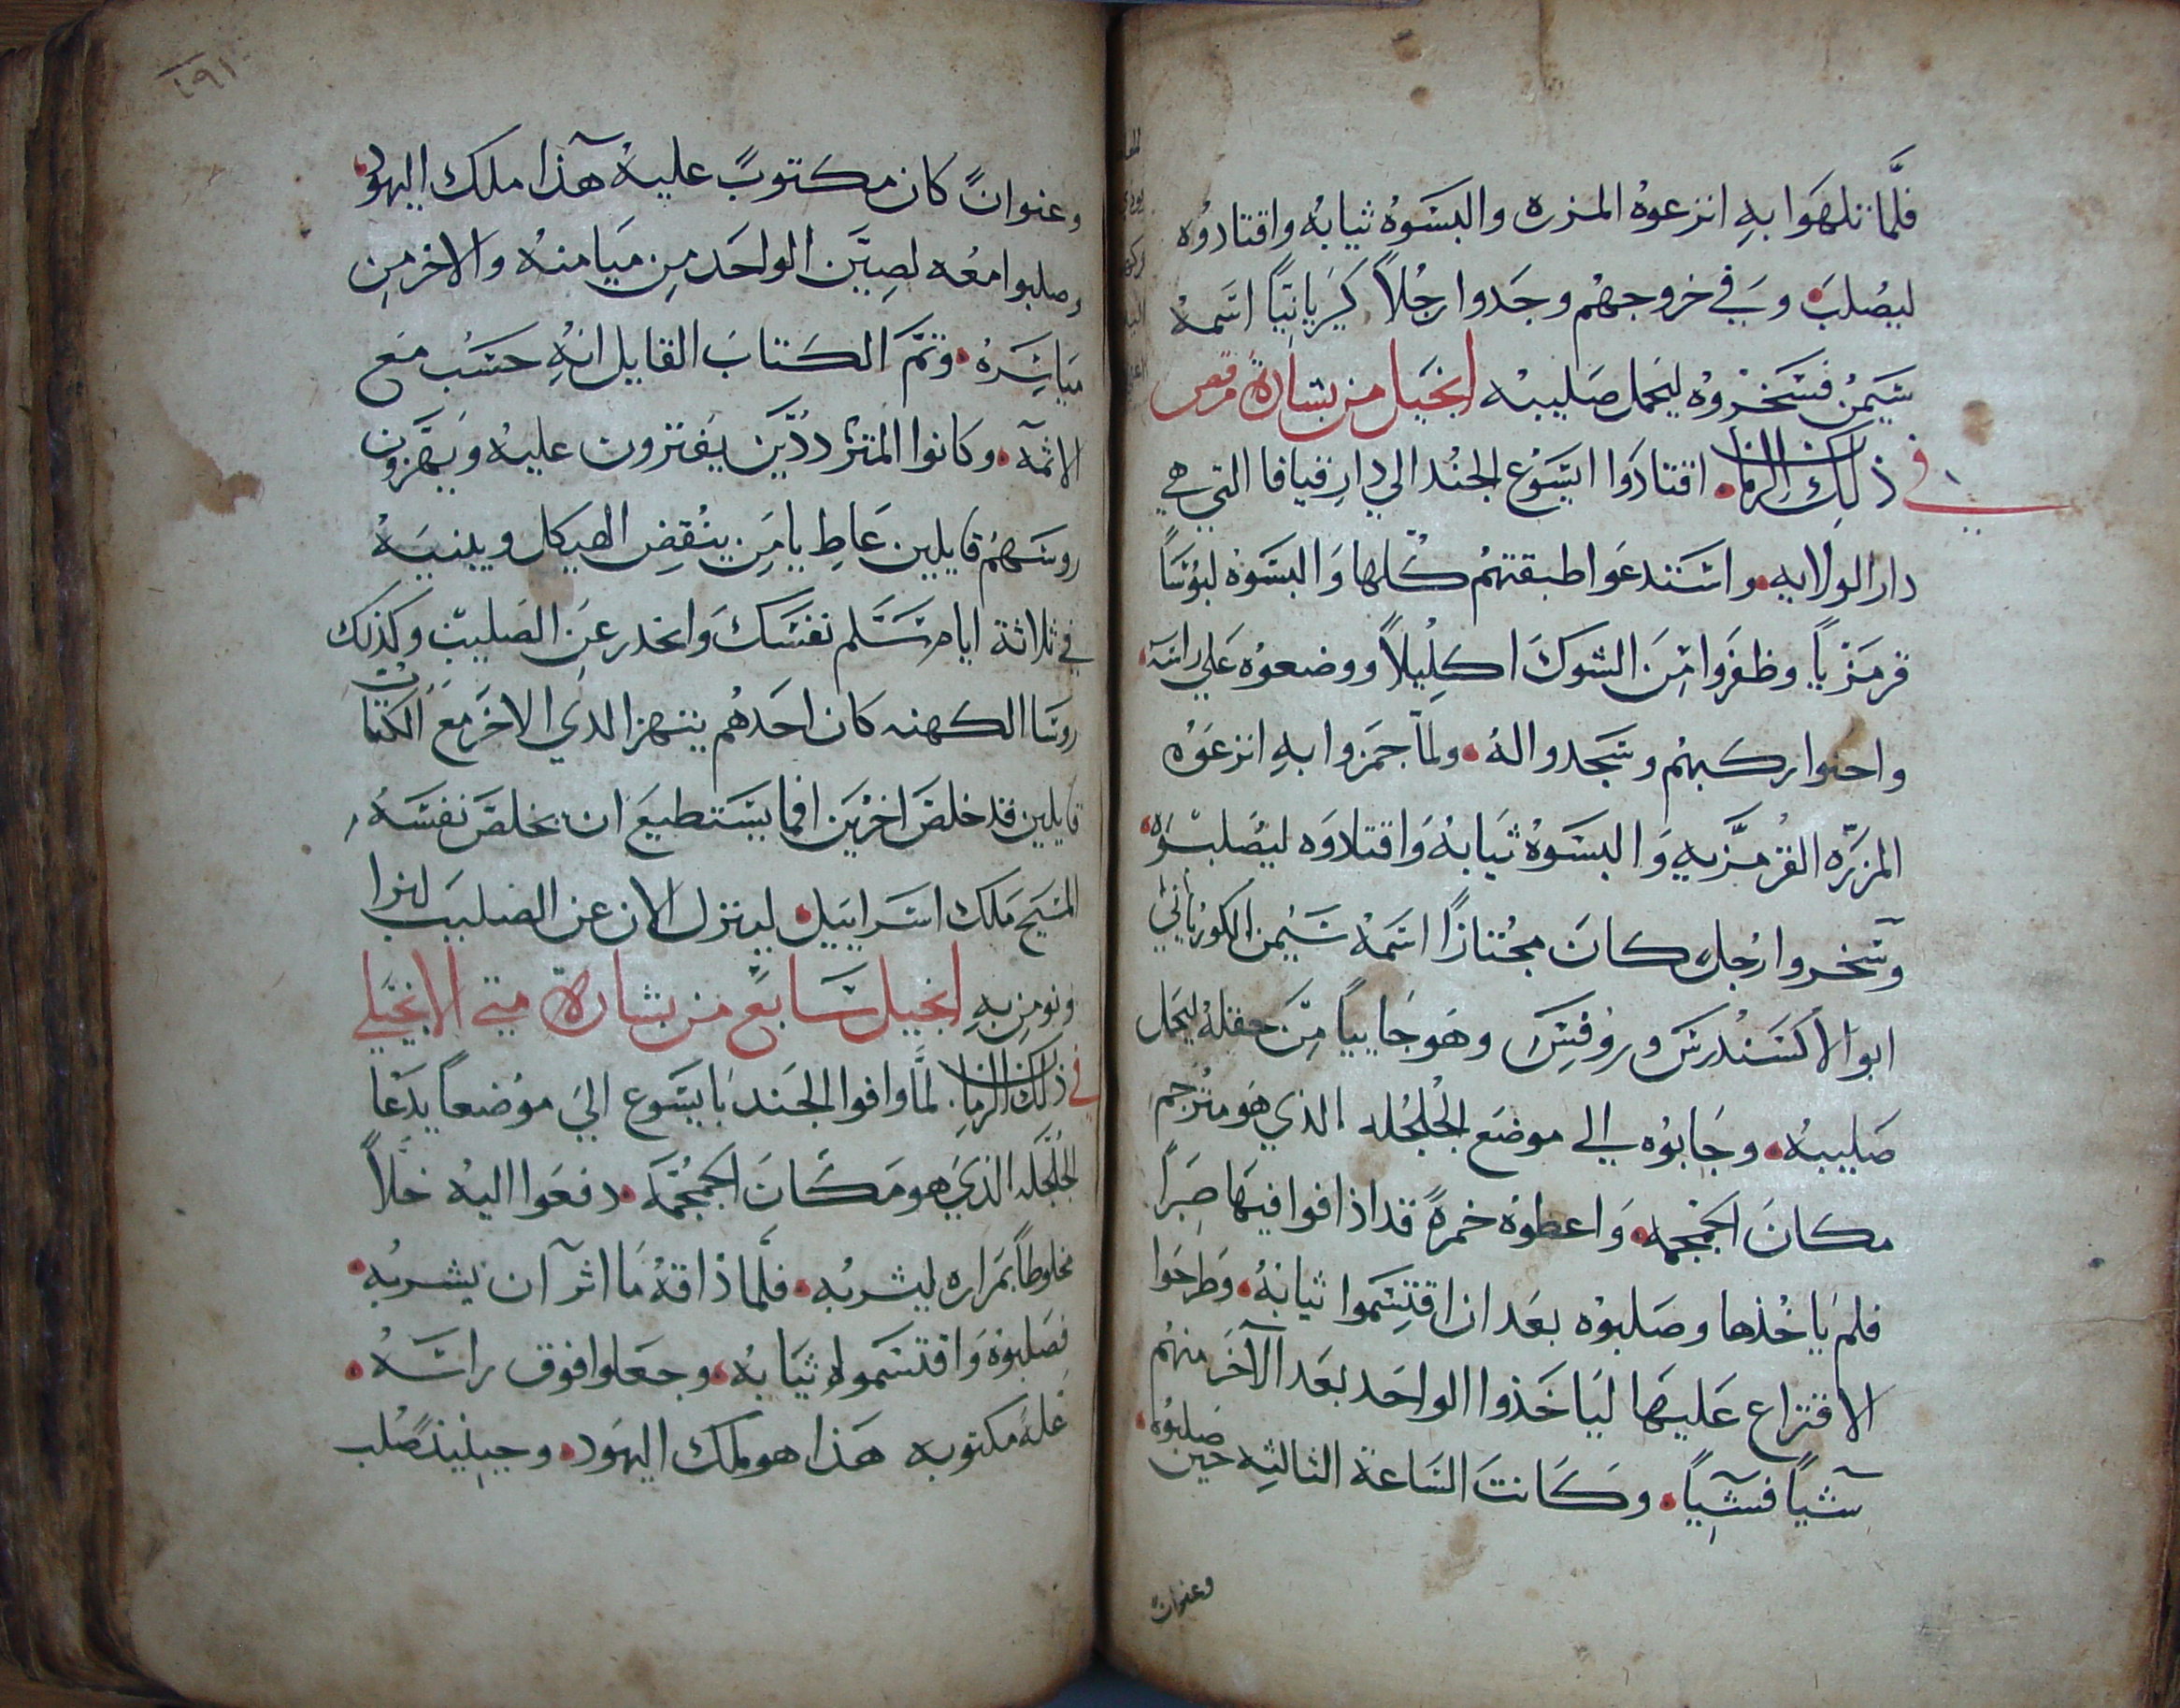 فلما تلهوا به انزعوه المزره والبسوه ثيابه واقتادوه
ليصلب وفي خروجهم وجدوا رجلاً كيريانيًا اسمه
شيمن فسخروه ليحمل صليبه انجيل من بشارة مرقص
في ذلك الزمان اقتادوا ايسوع الجند الي دار قيافا التي هي
دار الولايه واستدعوا طبقتهم كلها والبسوه لبوسًا
قرمزياً وظفروا من الشوك اكليلاً ووضعوه علي راسه
واحنوا ركبهم وسجدوا له ولما جمزوا به انزعوه
المزره القرمزيه والبسوه ثيابه واقتادوه ليصلبوه
وسخروا رجل كان مجتازًا اسمه شيمن الكورناني
ابو الاكسندرس وروفس وهو جايياً من حقله ليحمل
صليبه وجابوه الي موضع الجلجله الذي هو مترجم
مكان الجمجمه واعطوه خمرةً قد اذافوا فيها صبرًا
فلم ياخذها وصلبوه بعد ان اقتسموا ثيابه وطرحوا
الاقتراع عليها لياخذوا الواحد بعد الآخر منهم
شياً فشياً وكانت الساعة الثالثه حين صلبوه
وعنوان
٤٩١
وعنوانً كان مكتوبً عليه هذا ملك اليهود
وصلبوا معه لصين الواحد من ميامنه والاخر من
مياسره وتم الكتاب القايل انه حسب مع
الاثمه وكانوا المترددين يفترون عليه ويهزون
روسهم قايلين عاط يا من ينقض الهيكل ويبنيه
في ثلاثة ايام سلم نفسك وانحدر عن الصليب وكذلك
روسا الكهنه كان احدهم ينهز الدي الاخر مع الكتاب
قايلين قد خلص اخرين افما يستطيع ان يخلص نفسه
المسيح ملك اسراييل لينزل الان عن الصليب لنرا
ونومن به انجيل سابع من بشارة متي الانجيلي
في ذلك الزمان لما وافوا الجند بايسوع الي موضعاً يدعا
الجلجله الذي هو مكان الجمجمه دفعوا اليه خلاً
مخلوطاً بمراره ليشربه فلما ذاقه ما اثر ان يشربه
فصلبوه واقتسموا ثيابه وجعلوا فوق راسه
علةً مكتوبه هذا هو ملك اليهود وحينيذ صلب